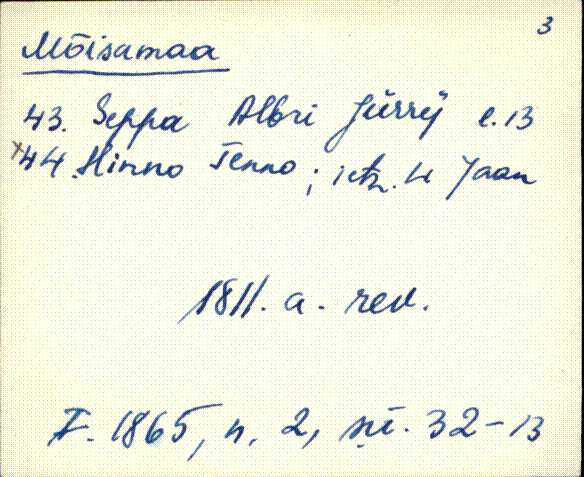 3
Mõisamaa
43. Seppa Albri Jürrÿ l. 13
x44. Hinno Tenno; ietz. 4 Jaan
1811. a. rev.
F. 1865, n. 2, sü. 32-13